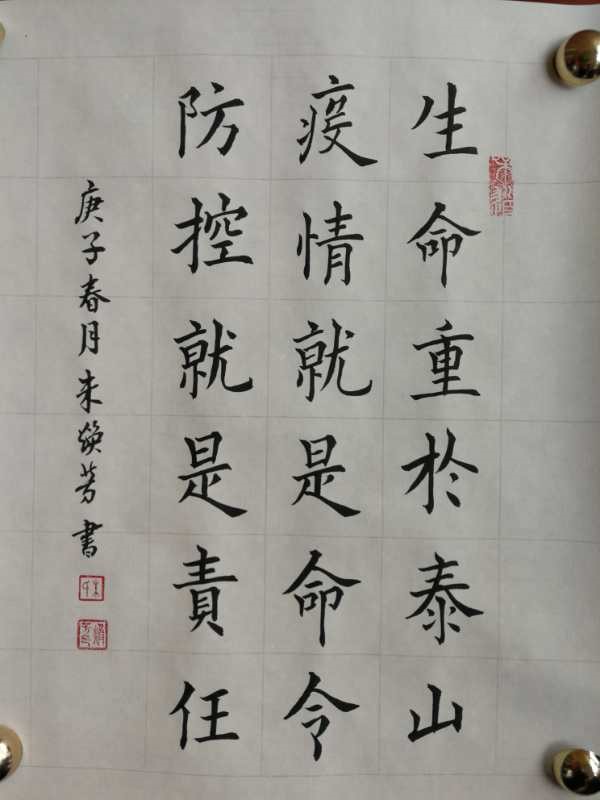 生命重於泰山
疫情就是命令
防控就是責任
庚子春月朱焕芳書